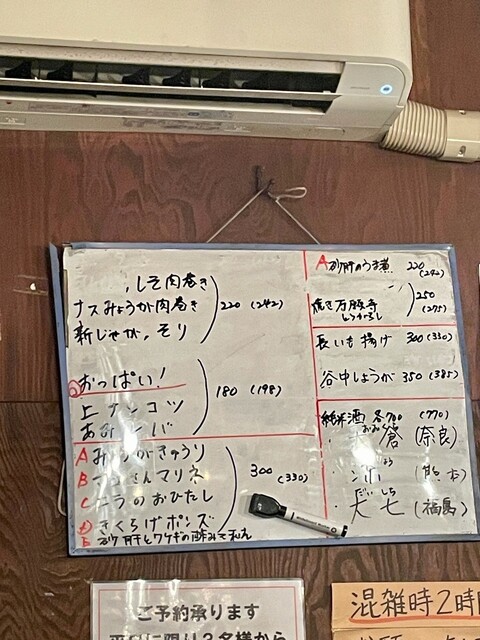 しそ肉巻き
ナスみょうが肉巻き
新じゃが
220 (242)
おっぱい!
上ナンコツ
180 (198)
A みょうがきゅうり
B マリネ
C ニラのおひたし
D きくらげポンズ
E 砂肝とワケギの酢みそ和え
300
(330)
A 砂肝のうま煮 220
(242)
焼き万願寺
しょうが
250
(275)
長いも揚げ 300 (330)
谷中しょうが 350 (385)
純米酒 各700 (770)
倉 (奈良)
(熊本)
だいしち
大七 (福島)
ご予約承ります
平日に限り3名様から
混雑時2時